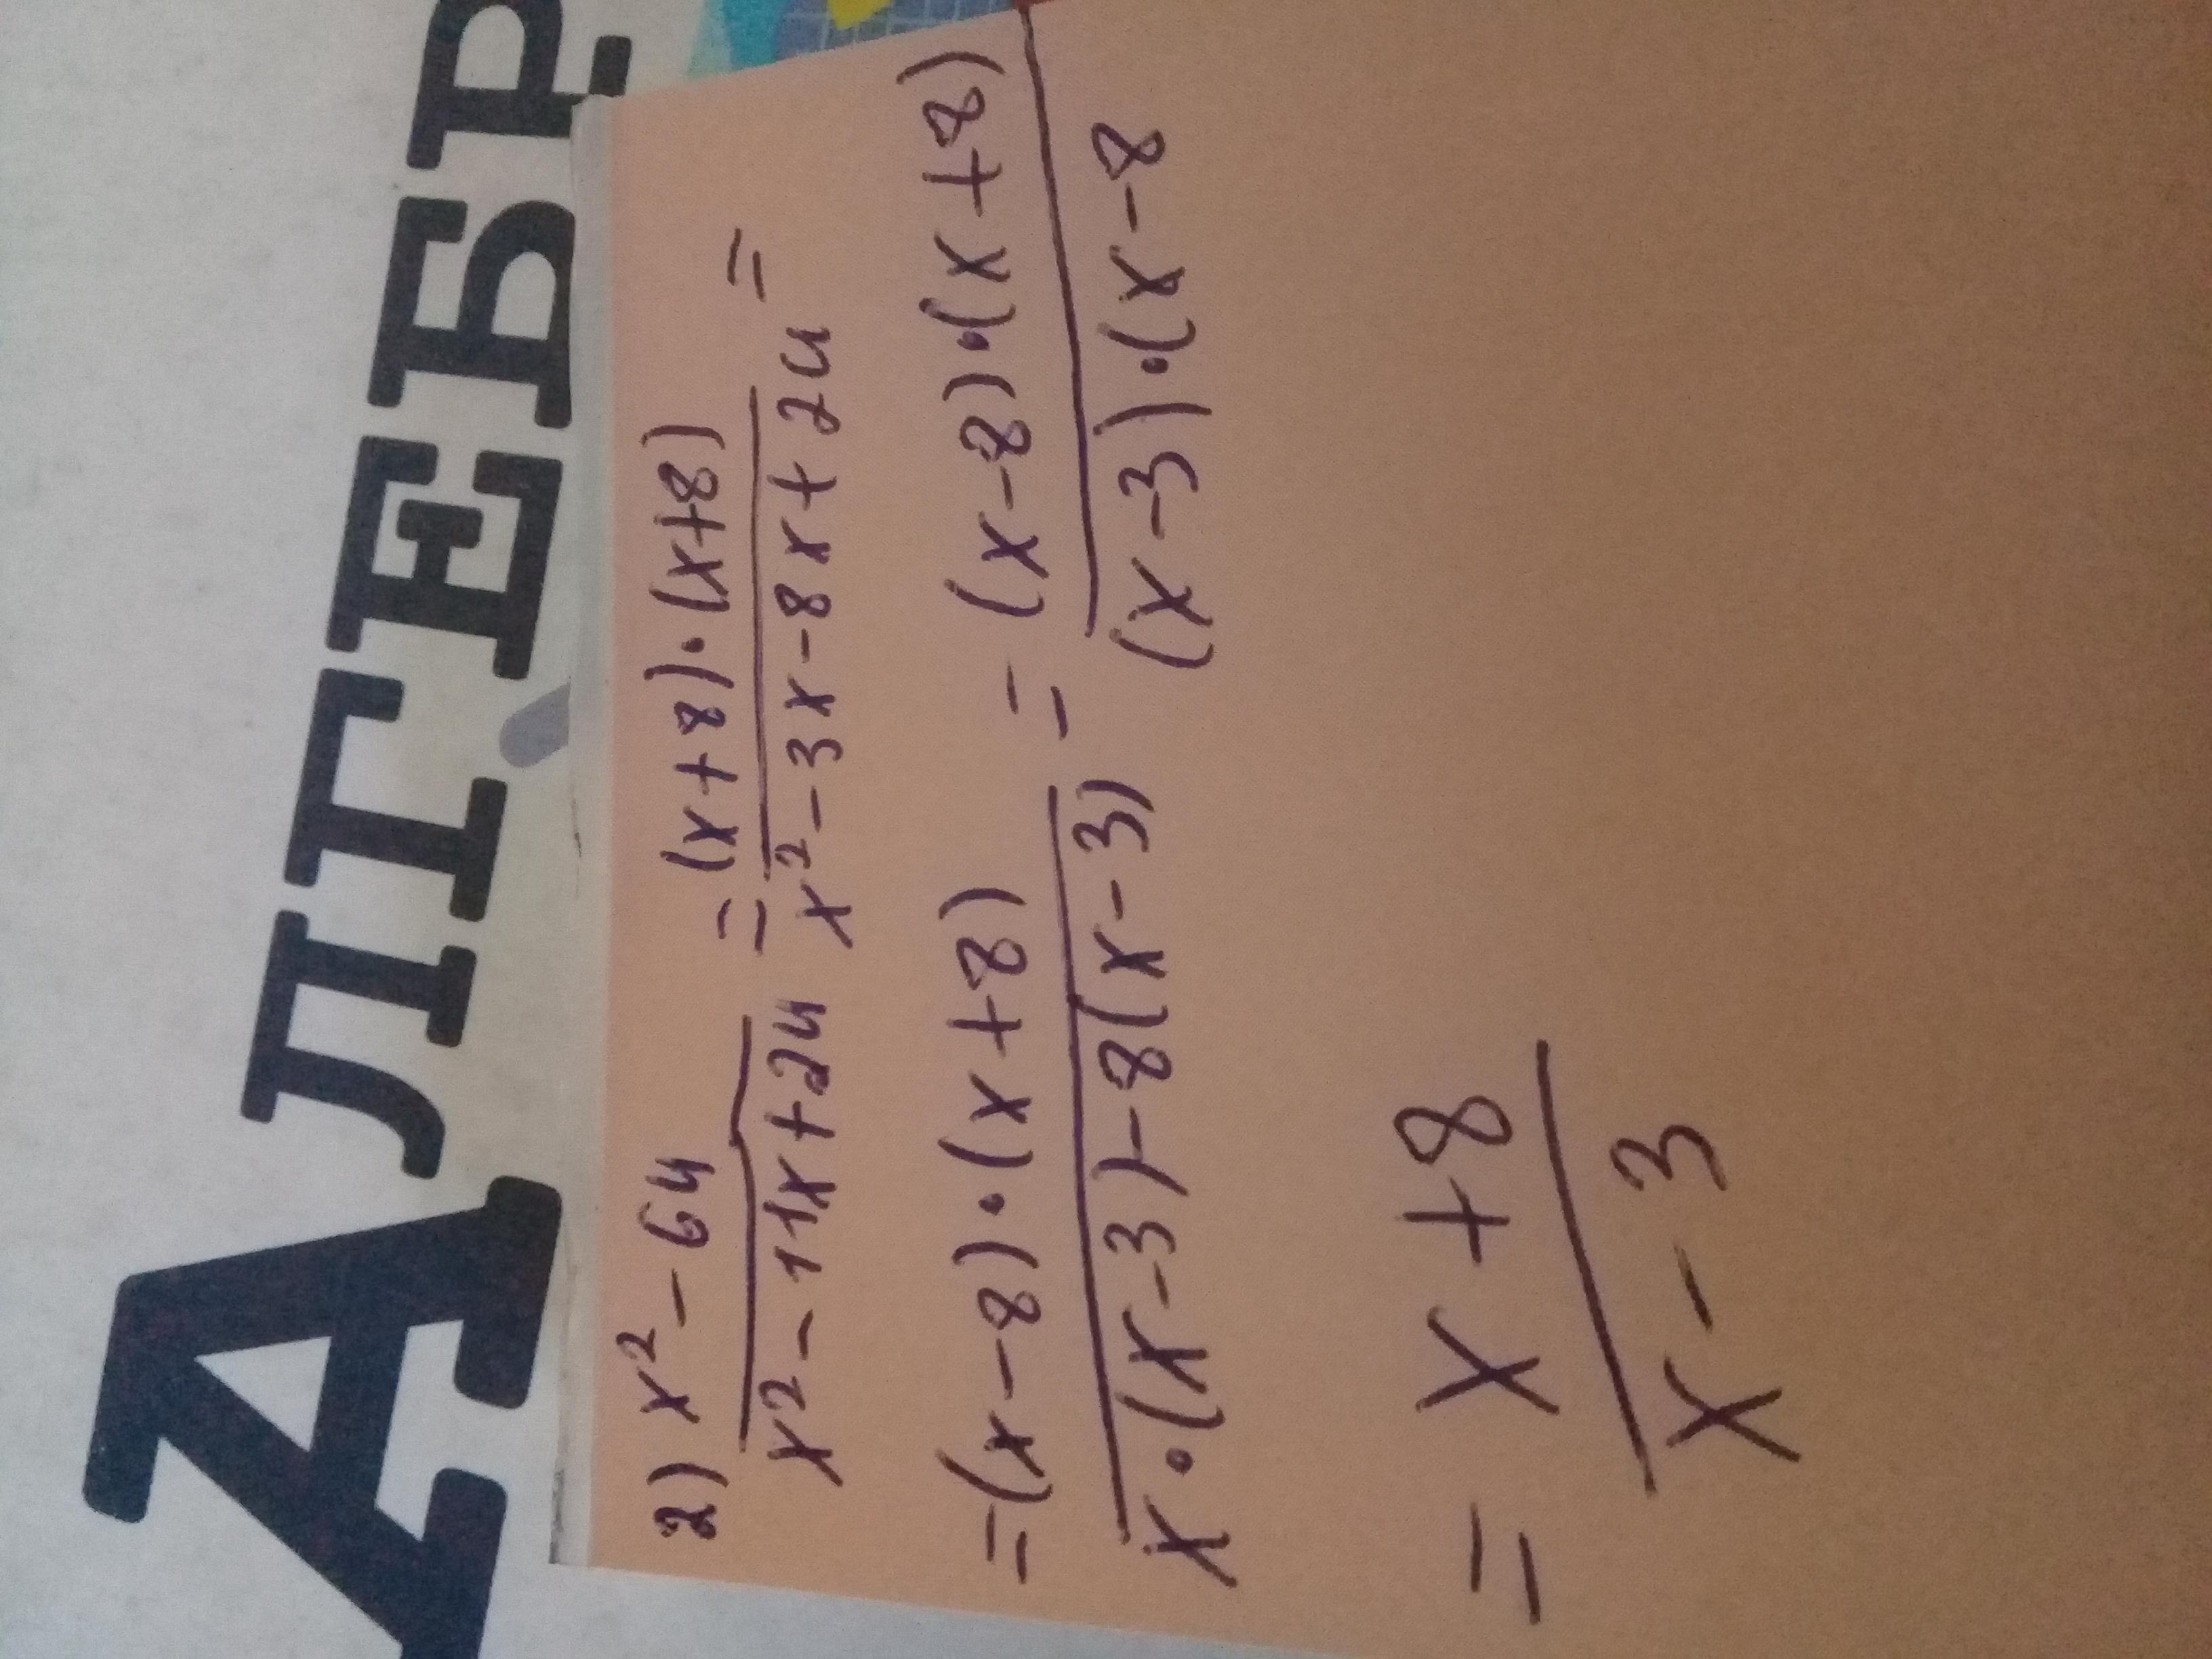 АЛГЕБР
2) x² - 64 / x² - 11x + 24 = (x+8)·(x+8) / x² - 3x - 8x + 24 =
= (x-8)·(x+8) / x·(x-3) - 8(x-3) = (x-8)·(x+8) / (x-3)·(x-8
= x+8 / x-3